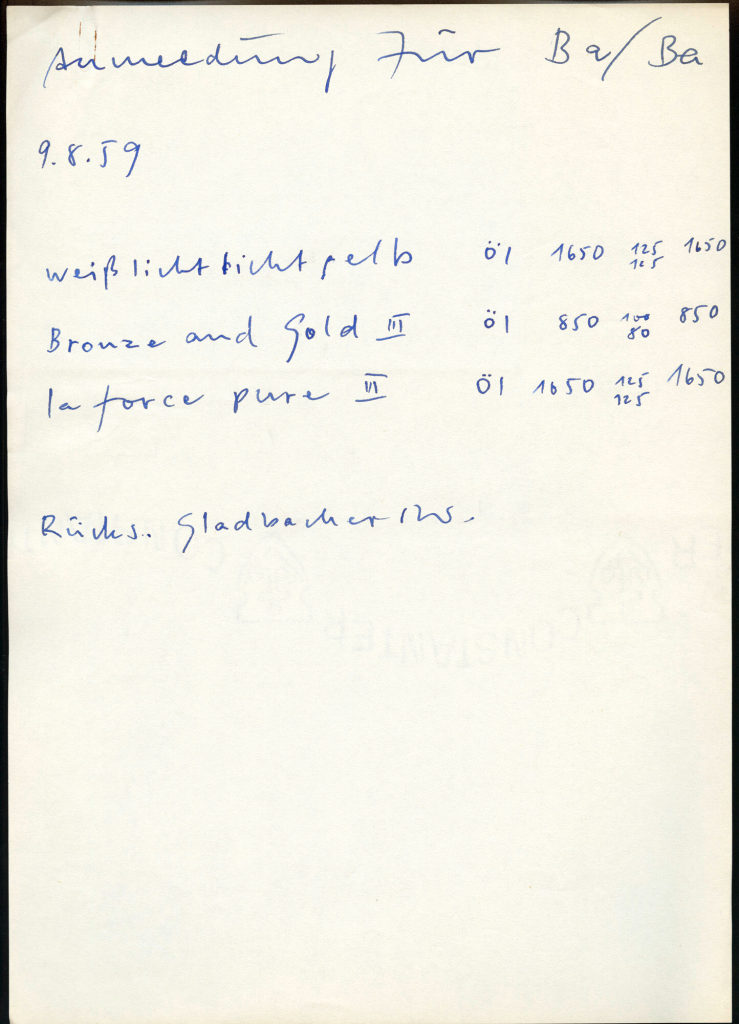 Anmeldung für Ba/Ba
9.8.59
weißlichtlichtgelb Öl 1650 125 125 1650
Bronze and Gold III Öl 850 100 80 850
la force pure III Öl 1650 125 125 1650
Rücks. Gladbacher